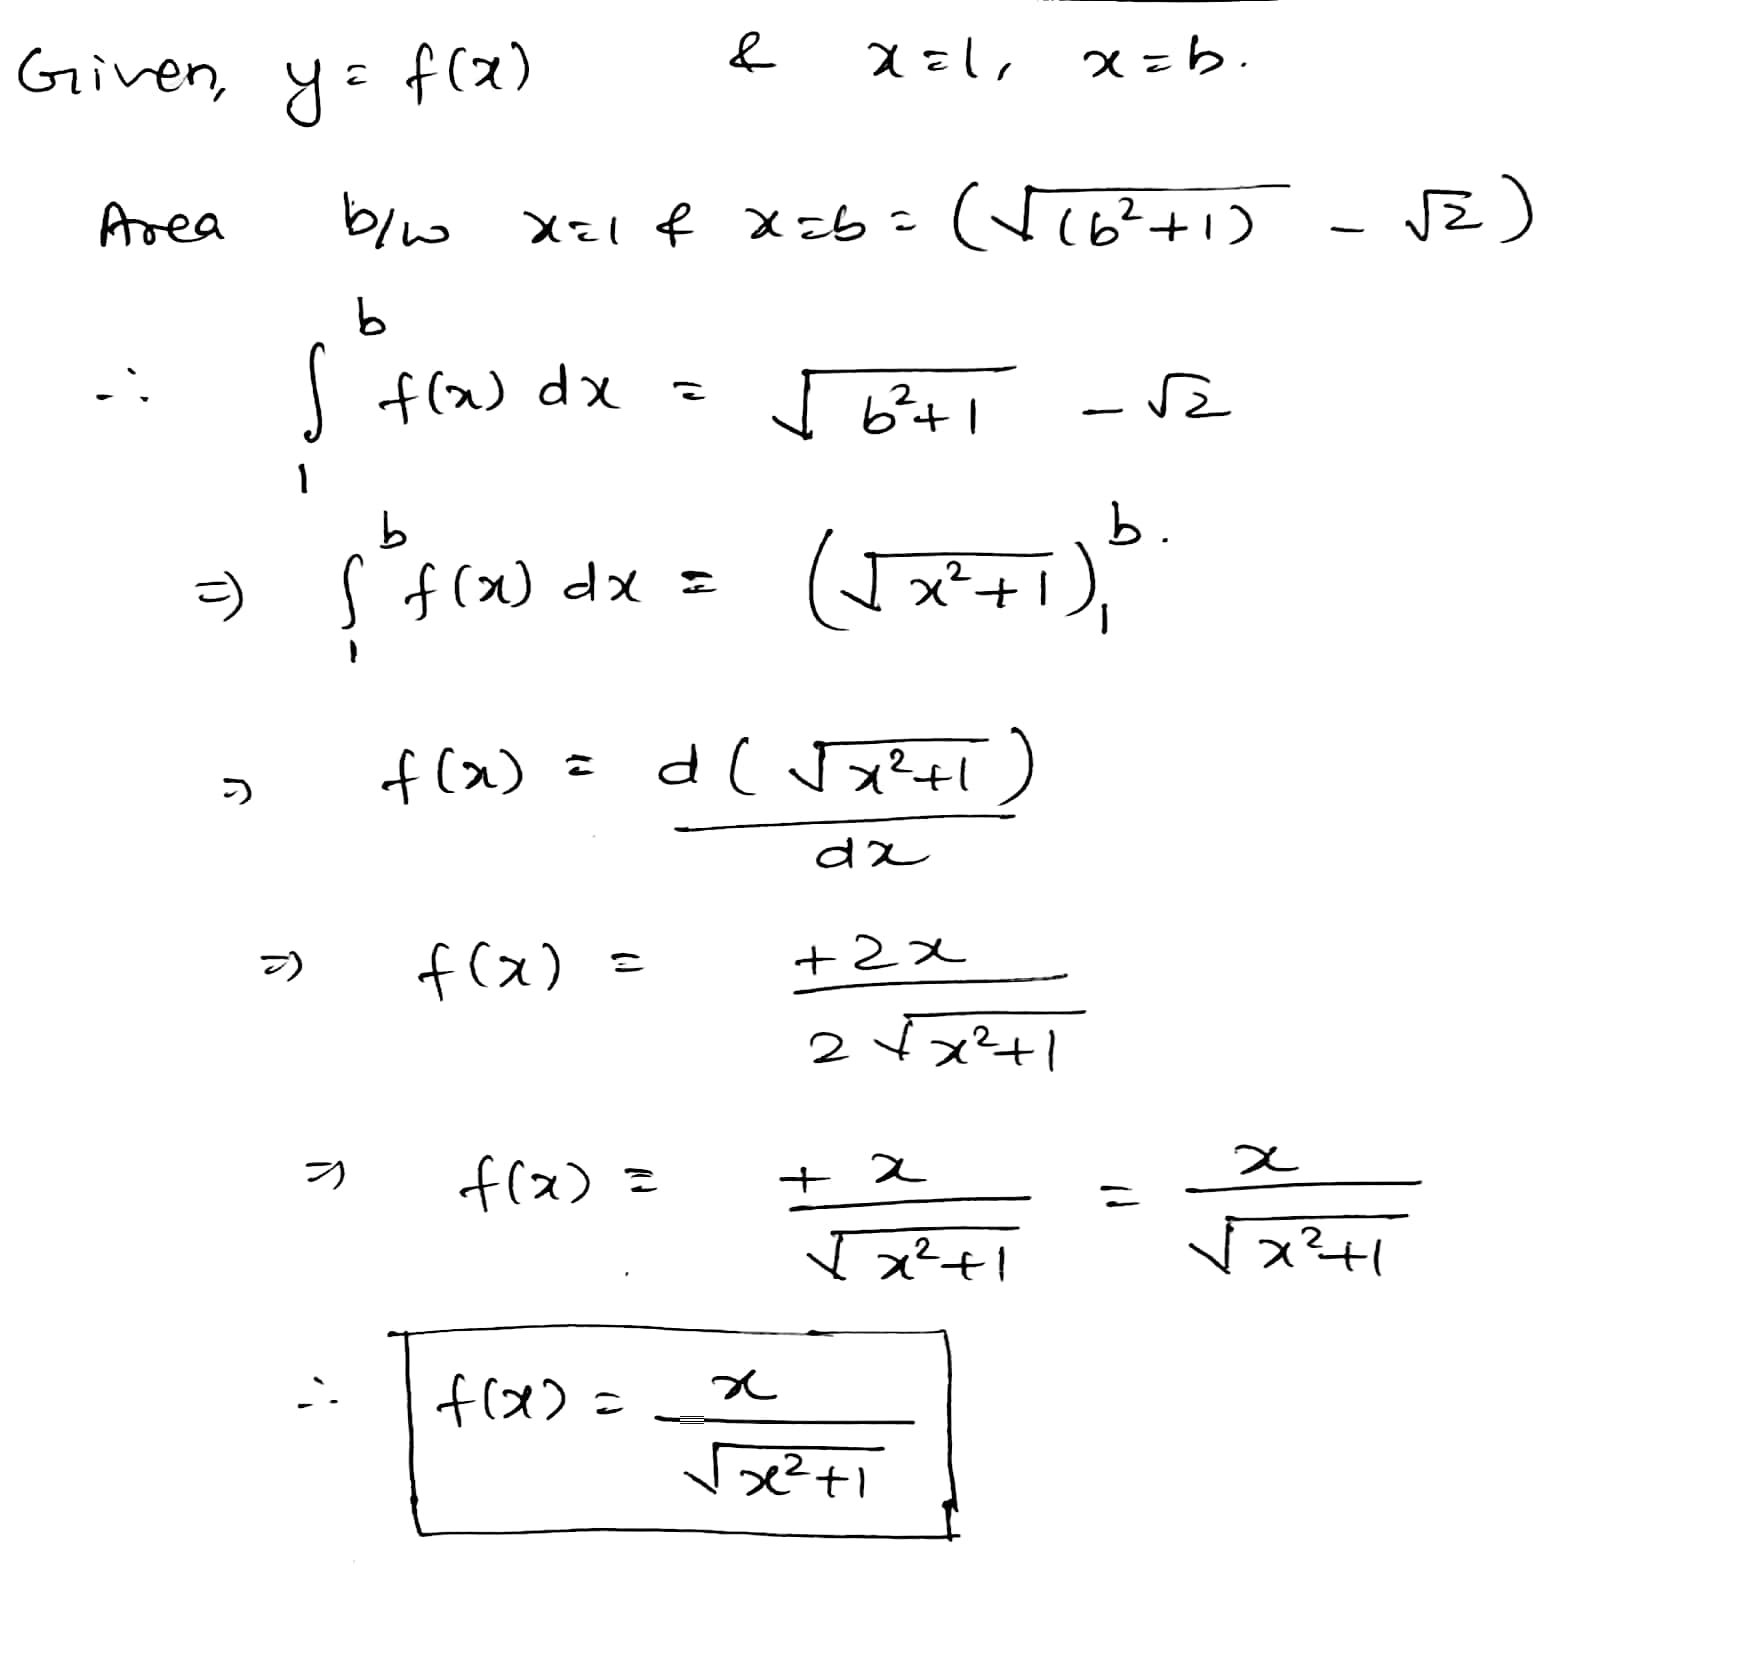 Given, y = f(x) & x=1, x=b.
Area b/w x=1 & x=b = (√(b²+1) - √2)
∴ ∫₁ᵇ f(x) dx = √(b²+1) - √2
⇒ ∫₁ᵇ f(x) dx = (√(x²+1))₁ᵇ.
⇒ f(x) = d(√(x²+1)) / dx
⇒ f(x) = +2x / 2√(x²+1)
⇒ f(x) = +x / √(x²+1) = x / √(x²+1)
∴ f(x) = x / √(x²+1)